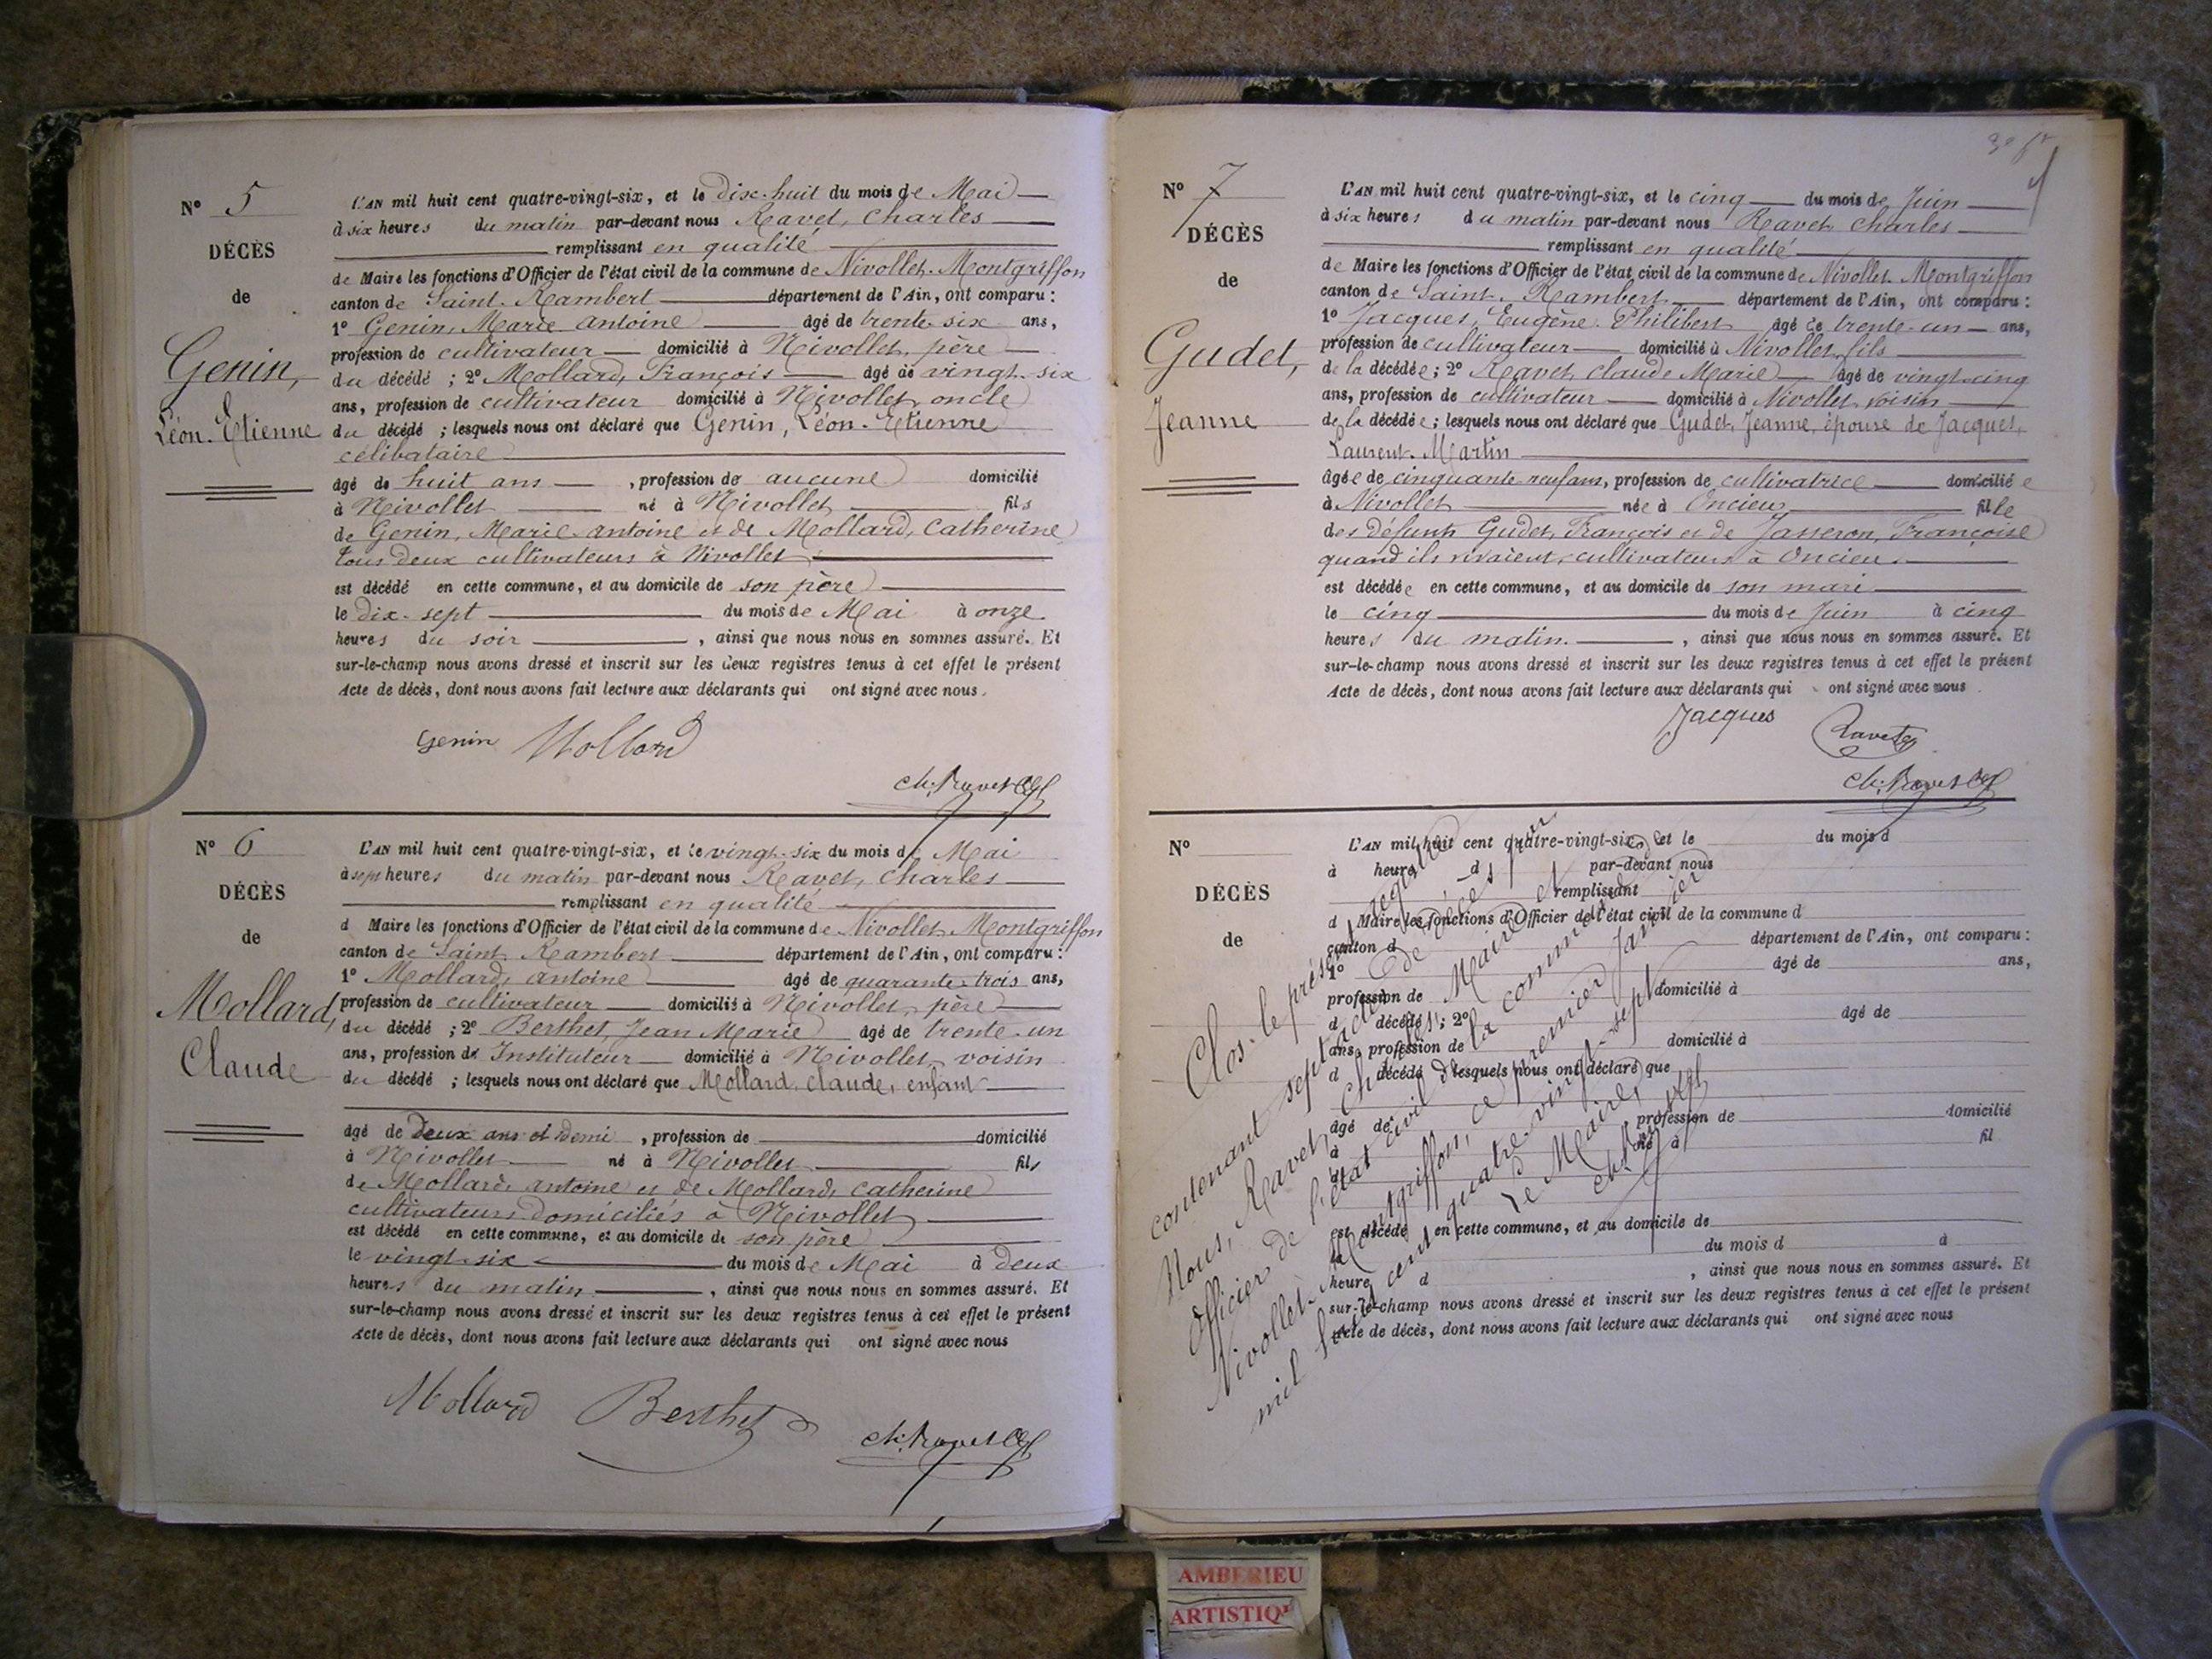 N° 5
DÉCÈS
de
Genin,
Léon-Etienne
L'AN mil huit cent quatre-vingt-six, et le dix-huit du mois de Mai
à six heures du matin par-devant nous Ravet, Charles
remplissant en qualité
de Maire les fonctions d'Officier de l'état civil de la commune de Nivollet-Montgriffon
canton de Saint-Rambert département de l'Ain, ont comparu :
1° Genin, Marie Antoine âgé de trente-six ans,
profession de cultivateur domicilié à Nivollet, père
du décédé ; 2° Mollard, François âgé de vingt-six
ans, profession de cultivateur domicilié à Nivollet, oncle
du décédé ; lesquels nous ont déclaré que Genin, Léon-Etienne
célibataire
âgé de huit ans , profession de aucune domicilié
à Nivollet né à Nivollet fils
de Genin, Marie Antoine et de Mollard, Catherine
tous deux cultivateurs à Nivollet
est décédé en cette commune, et au domicile de son père
le dix-sept du mois de Mai à onze
heures du soir , ainsi que nous nous en sommes assuré. Et
sur-le-champ nous avons dressé et inscrit sur les deux registres tenus à cet effet le présent
Acte de décès, dont nous avons fait lecture aux déclarants qui ont signé avec nous.
Genin Mollard
Ch. Ravet
N° 6
DÉCÈS
de
Mollard,
Claude
L'AN mil huit cent quatre-vingt-six, et le vingt-six du mois de Mai
à sept heures du matin par-devant nous Ravet, Charles
remplissant en qualité
d Maire les fonctions d'Officier de l'état civil de la commune de Nivollet-Montgriffon
canton de Saint-Rambert département de l'Ain, ont comparu :
1° Mollard, Antoine âgé de quarante-trois ans,
profession de cultivateur domicilié à Nivollet, père
du décédé ; 2° Berthet, Jean Marie âgé de trente-un
ans, profession de Instituteur domicilié à Nivollet, voisin
du décédé ; lesquels nous ont déclaré que Mollard, Claude, enfant
âgé de deux ans et demi , profession de domicilié
à Nivollet né à Nivollet fils
de Mollard, Antoine et de Mollard, Catherine
cultivateurs domiciliés à Nivollet
est décédé en cette commune, et au domicile de son père
le vingt-six du mois de Mai à deux
heures du matin , ainsi que nous nous en sommes assuré. Et
sur-le-champ nous avons dressé et inscrit sur les deux registres tenus à cet effet le présent
Acte de décès, dont nous avons fait lecture aux déclarants qui ont signé avec nous
Mollard Berthet
Ch. Ravet
N° 7
DÉCÈS
de
Gudet,
Jeanne
L'AN mil huit cent quatre-vingt-six, et le cinq du mois de Juin
à six heures du matin par-devant nous Ravet, Charles
remplissant en qualité
de Maire les fonctions d'Officier de l'état civil de la commune de Nivollet-Montgriffon
canton de Saint-Rambert département de l'Ain, ont comparu :
1° Jacques, Eugène Philibert âgé de trente-un ans,
profession de cultivateur domicilié à Nivollet, fils
de la décédée ; 2° Ravet, Claude Marie âgé de vingt-cinq
ans, profession de cultivateur domicilié à Nivollet, voisin
de la décédée ; lesquels nous ont déclaré que Gudet, Jeanne, épouse de Jacques,
Laurent-Martin
âgée de cinquante-neuf ans, profession de cultivatrice domiciliée
à Nivollet née à Oncieu fille
des défunts Gudet, François et de Jasseron, Françoise
quand ils vivaient, cultivateurs à Oncieu
est décédée en cette commune, et au domicile de son mari
le cinq du mois de Juin à cinq
heures du matin. , ainsi que nous nous en sommes assuré. Et
sur-le-champ nous avons dressé et inscrit sur les deux registres tenus à cet effet le présent
Acte de décès, dont nous avons fait lecture aux déclarants qui ont signé avec nous.
Jacques Ravet
Ch. Ravet
N°
DÉCÈS
de
L'AN mil huit cent quatre-vingt-six, et le du mois d
à heure d par-devant nous
remplissant
d Maire les fonctions d'Officier de l'état civil de la commune d
canton d département de l'Ain, ont comparu :
1° âgé de ans,
profession de domicilié à
d décédé ; 2° âgé de
ans, profession de domicilié à
d décédé lesquels nous ont déclaré que
âgé de profession de domicilié
à né à fil
est décédé en cette commune, et au domicile de
le du mois d à
heure d , ainsi que nous nous en sommes assuré. Et
sur-le-champ nous avons dressé et inscrit sur les deux registres tenus à cet effet le présent
Acte de décès, dont nous avons fait lecture aux déclarants qui ont signé avec nous
Clos le présent registre
contenant sept actes de décès par
Nous, Ravet, Charles, Maire et
Officier de l'état civil de la commune de
Nivollet-Montgriffon, ce premier Janvier
mil huit cent quatre-vingt-sept
Le Maire,
Ch. Ravet
AMBERIEU
ARTISTIQ